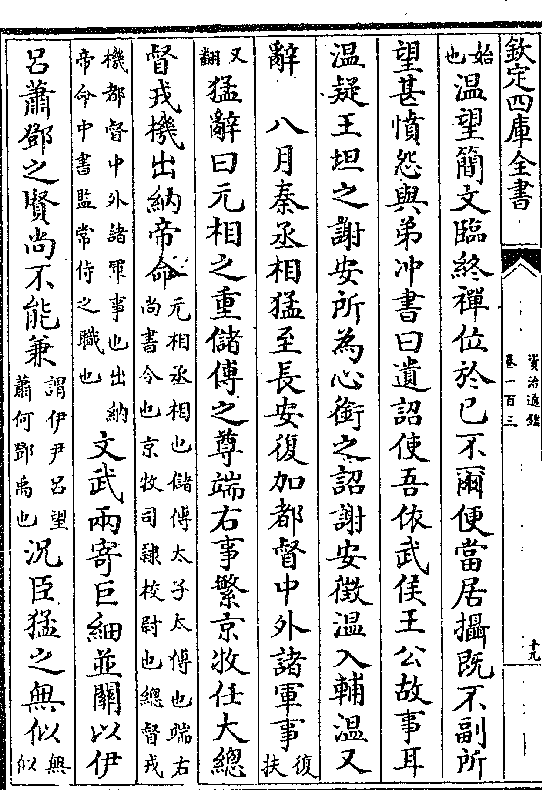 欽定四庫全書
資治通鑑
卷一百三
十九
始也温望簡文臨終禪位於已不爾便當居攝既不副所
望甚憤怨與弟冲書曰遺詔使吾依武侯王公故事耳
温疑王坦之謝安所為心銜之詔謝安徵温入輔温又
辭　八月秦丞相猛至長安復加都督中外諸軍事復扶
又翻猛辭曰元相之重儲傅之尊端右事繁京牧任大總
督戎機出納帝命元相丞相也儲傅太子太傅也端右尚書令也京牧司隸校尉也總督戎
機都督中外諸軍事也出納帝命中書監常侍之職也文武兩寄巨細並關以伊
呂蕭鄧之賢尚不能兼謂伊尹呂望蕭何鄧禹也況臣猛之無似無似